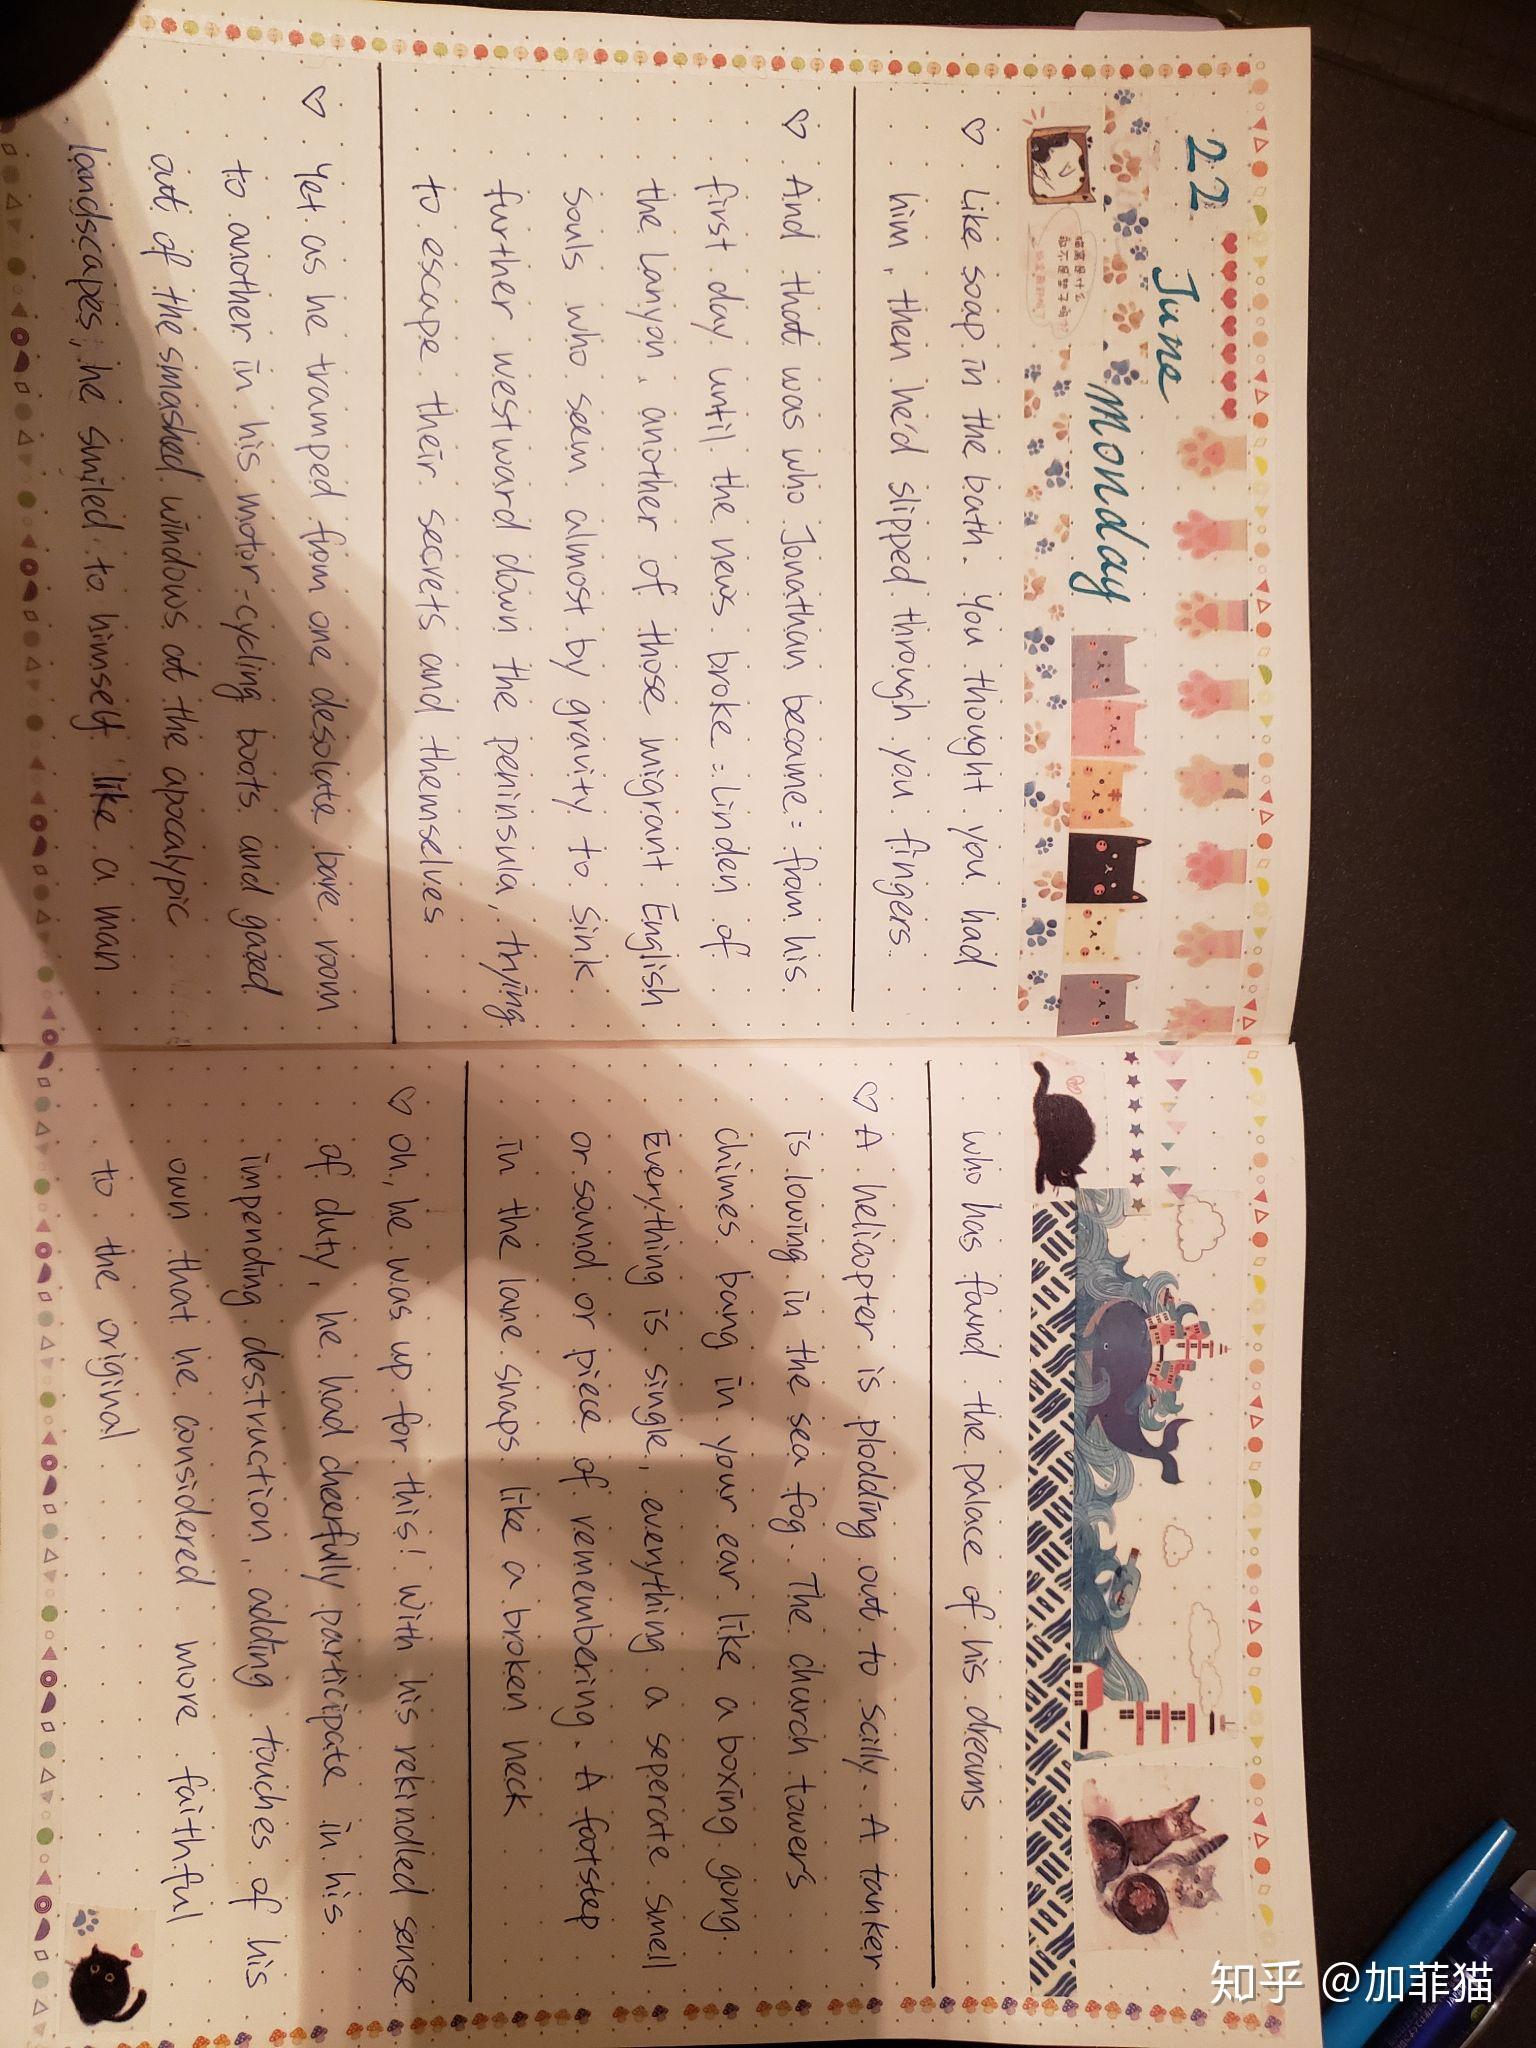 22 June Monday
♡ Like soap in the bath. You thought you had
him, then he'd slipped through you fingers.
♡ And that was who Jonathan became = from his
first day until the news broke = Linden of
the Lanyon, another of those migrant English
souls who seem almost by gravity to sink
further westward down the peninsula, trying
to escape their secrets and themselves
♡ Yet as he tramped from one desolate bare room
to another in his motor-cycling boots and gazed
out of the smashed windows at the apocalypic
landscapes, he smiled to himself like a man
who has found the palace of his dreams
♡ A heliopter is plodding out to scilly. A tanker
is lowing in the sea fog. The church towers
chimes bang in your ear like a boxing gong.
Everything is single, everything a seperate smell
or sound or piece of remembering. A footstep
in the lane snaps like a broken neck
♡ Oh, he was up for this! with his rekindled sense
of duty, he had cheerfully participate in his
impending destruction, adding touches of his
own that he considered more faithful
to the original
知乎 @加菲猫